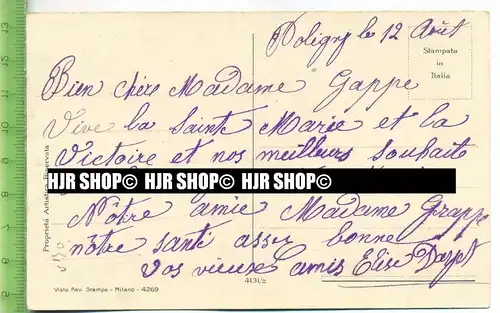 Poligny le 12 Août
Stampata
in
Italia
Bien chère Madame Gappe
Vive la Sainte Marie et la
Victoire et nos meilleurs souhaits
HJR SHOP© HJR SHOP© HJR SHOP©
Nôtre amie Madame Grapp
nôtre santé assez bonne
Vos vieux amis Elise
Proprietà Artistica Riservata
4131/2
Visto Rev. Stampa - Milano - 4269